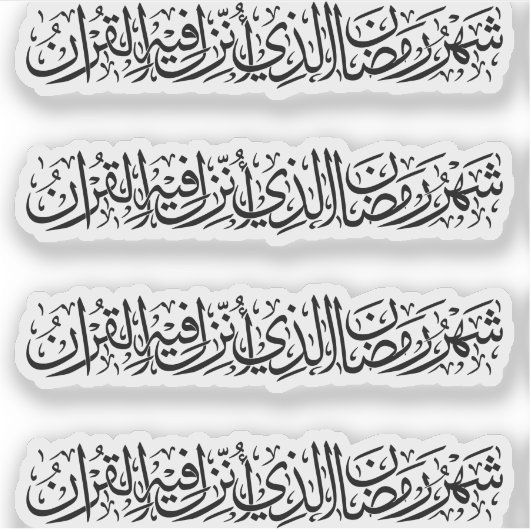 شَهْرُ رَمَضَانَ الَّذِي أُنْزِلَ فِيهِ الْقُرْآنُ
شَهْرُ رَمَضَانَ الَّذِي أُنْزِلَ فِيهِ الْقُرْآنُ
شَهْرُ رَمَضَانَ الَّذِي أُنْزِلَ فِيهِ الْقُرْآنُ
شَهْرُ رَمَضَانَ الَّذِي أُنْزِلَ فِيهِ الْقُرْآنُ